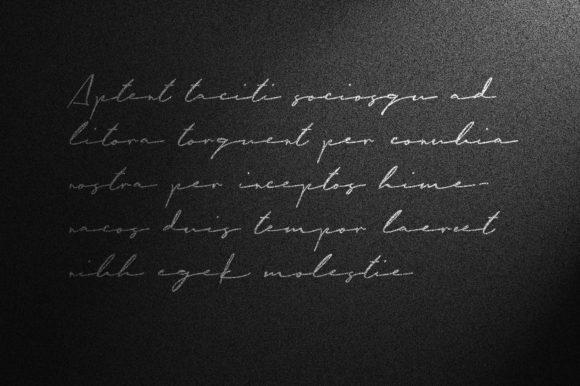 Aptent taciti sociosqu ad
litora torquent per conubia
nostra per inceptos hime-
naeos duis tempor laoreet
nibh egek molestie